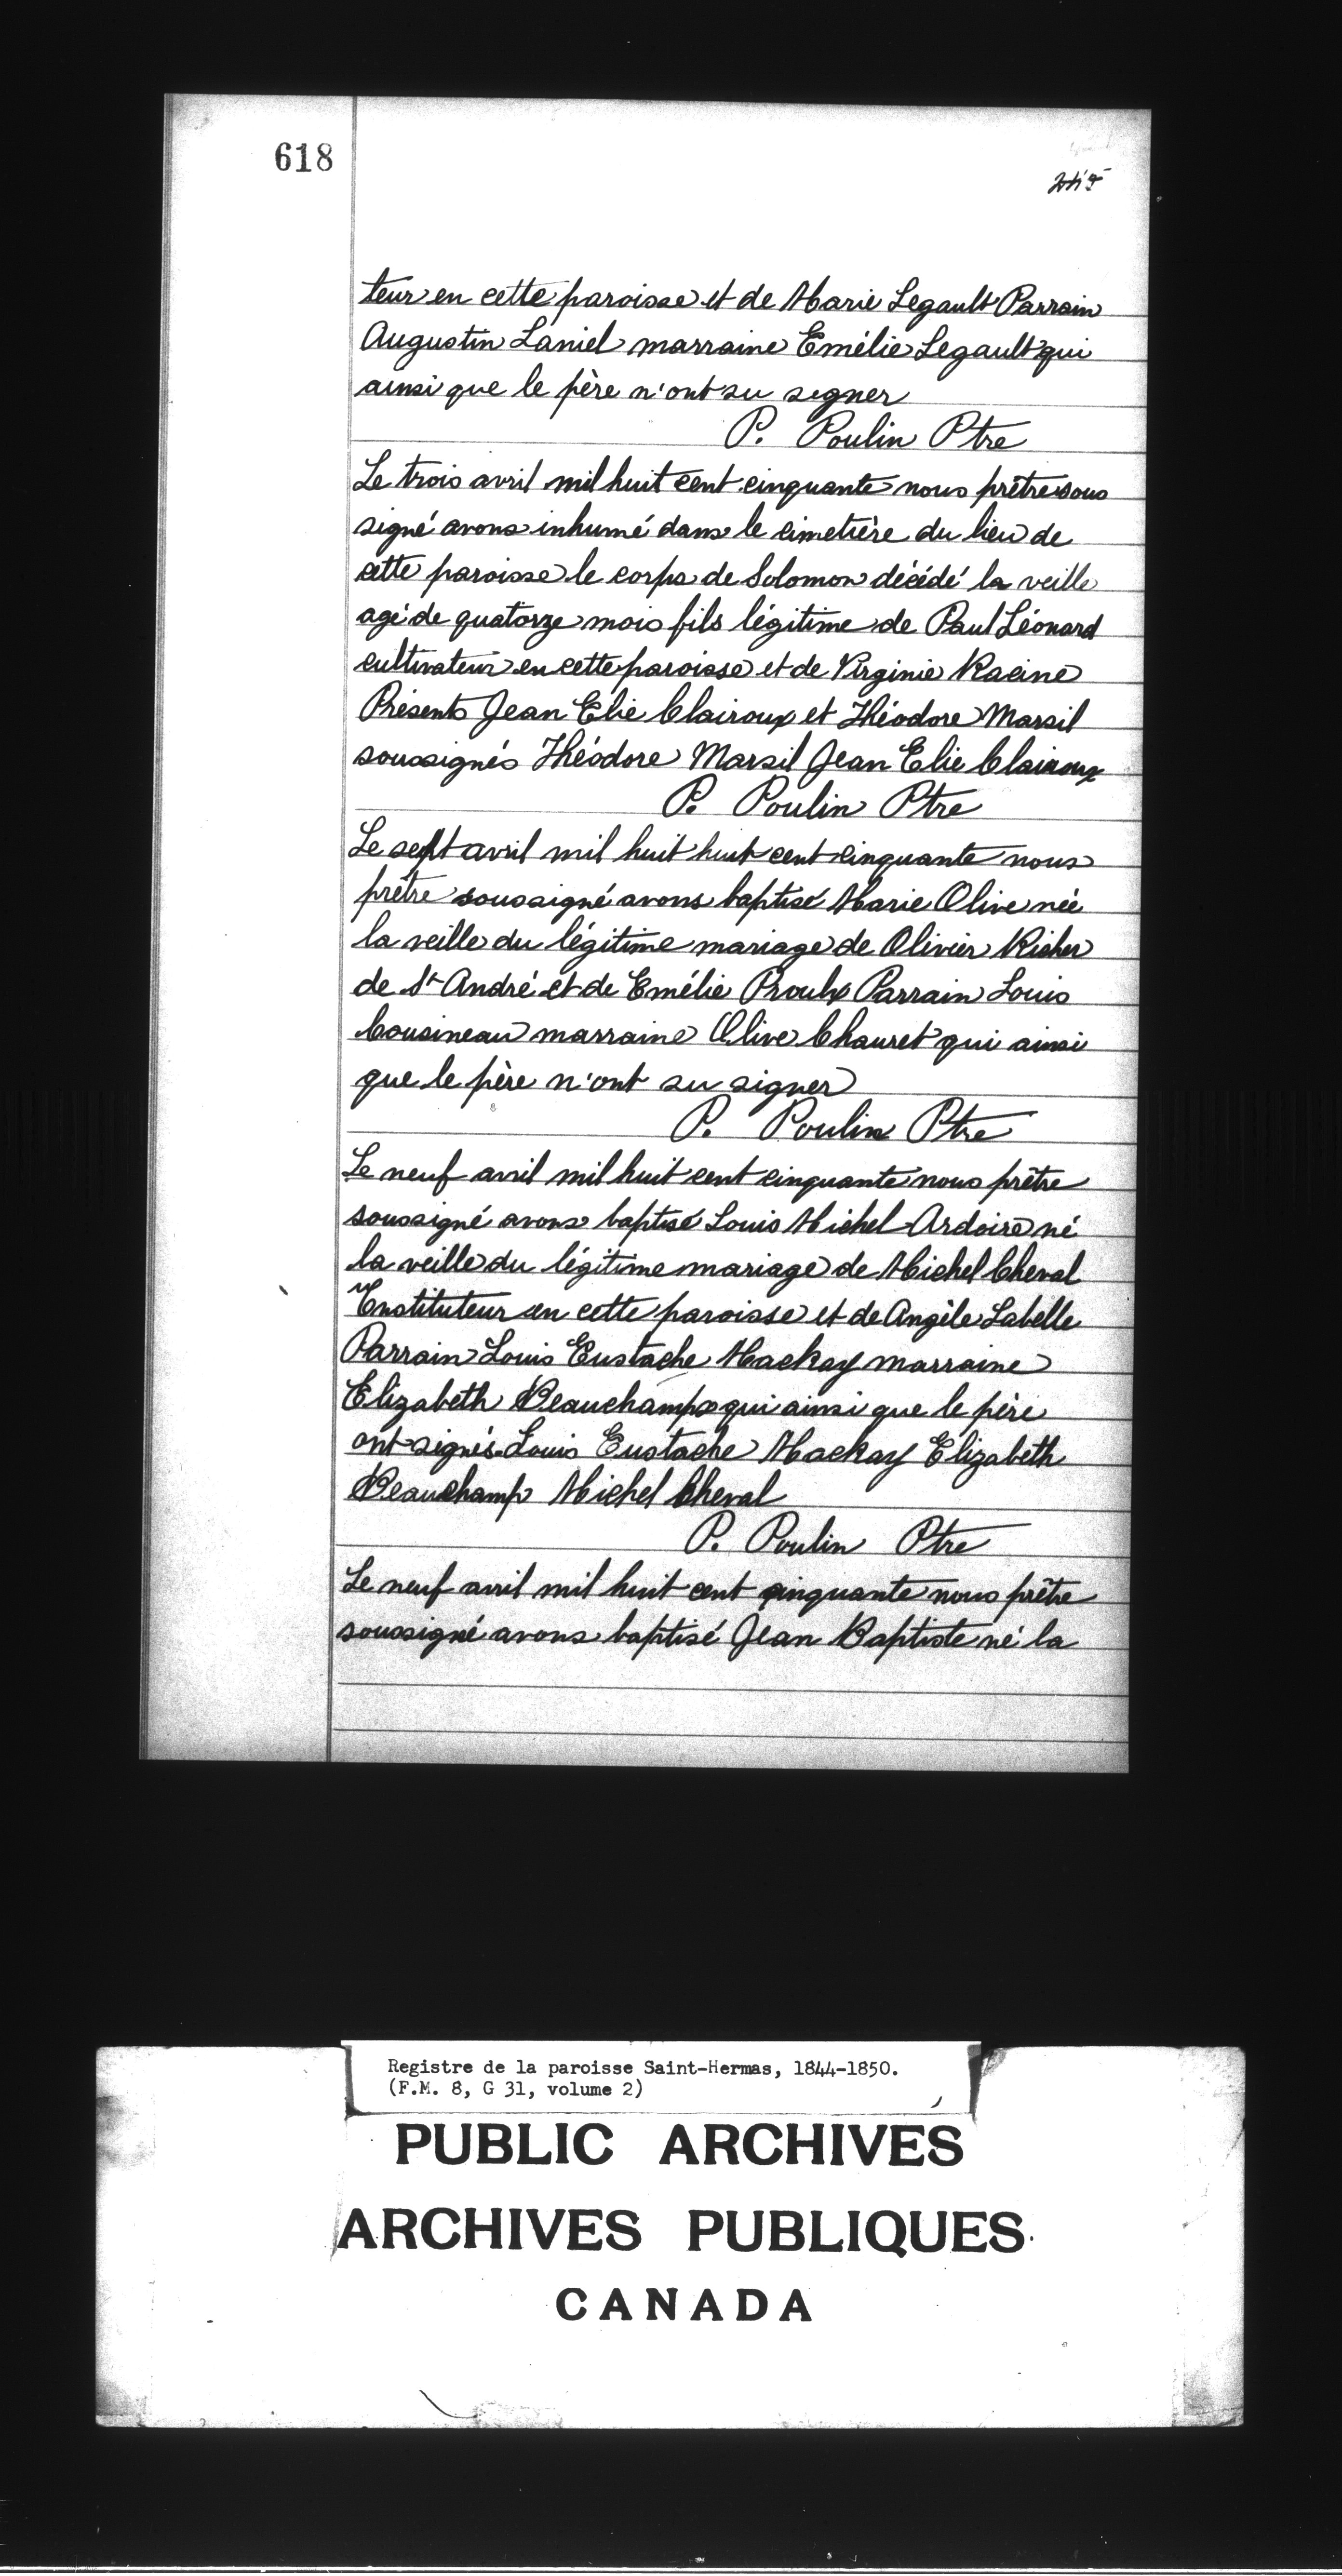 618
teur en cette paroisse et de Marie Legault Parrain
Augustin Laniel marraine Emélie Legault qui
ainsi que le père n'ont su signer
P. Poulin Ptre
Le trois avril mil huit cent cinquante nous prêtre sous
signé avons inhumé dans le cimetière du lieu de
cette paroisse le corps de Solomon décédé la veille
agé de quatorze mois fils légitime de Paul Léonard
cultivateur en cette paroisse et de Virginie Racine
Présents Jean Elie Clairoux et Théodore Marsil
soussignés Théodore Marsil Jean Elie Clairoux
P. Poulin Ptre
Le sept avril mil huit huit cent cinquante nous
prêtre soussigné avons baptisé Marie Olive née
la veille du légitime mariage de Olivier Richer
de St André et de Emélie Proulx Parrain Louis
Cousineau marraine Olive Chauret qui ainsi
que le père n'ont su signer
P. Poulin Ptre
Le neuf avril mil huit cent cinquante nous prêtre
soussigné avons baptisé Louis Michel Ardoire né
la veille du légitime mariage de Michel Cheval
Enstituteur en cette paroisse et de Angèle Labelle
Parrain Louis Eustache Mackay marraine
Elizabeth Beauchamp qui ainsi que le père
ont signés Louis Eustache Mackay Elizabeth
Beauchamp Michel Cheval
P. Poulin Ptre
Le neuf avril mil huit cent cinquante nous prêtre
soussigné avons baptisé Jean Baptiste né la
Registre de la paroisse Saint-Hermas, 1844-1850.
(F.M. 8, G 31, volume 2)
PUBLIC ARCHIVES
ARCHIVES PUBLIQUES
CANADA